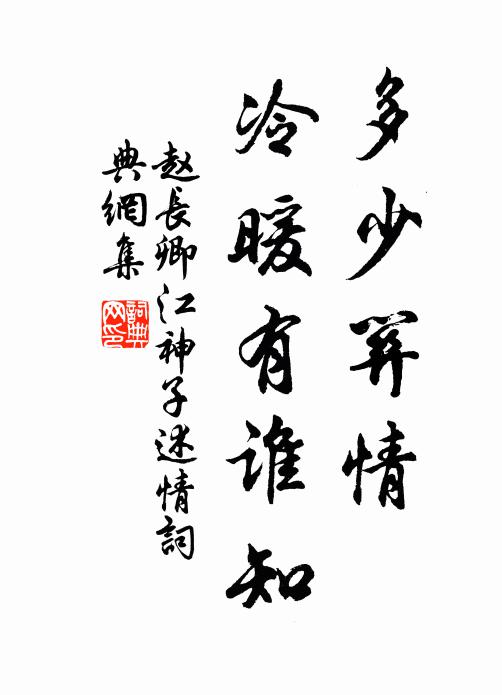 多少情
冷暖有誰知
赵長卿江神子述情詞
典網集
詞典
网印